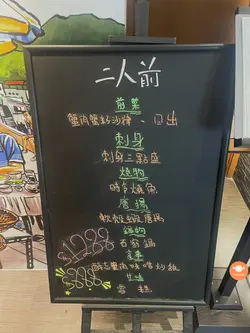 二人前
前菜
蟹肉蟹籽沙律、日出
刺身
刺身三點盛
燒物
時令燒魚
唐揚
軟殼蝦唐揚
鍋物
石狩鍋
主食
甜品
雪糕
$1288
$888